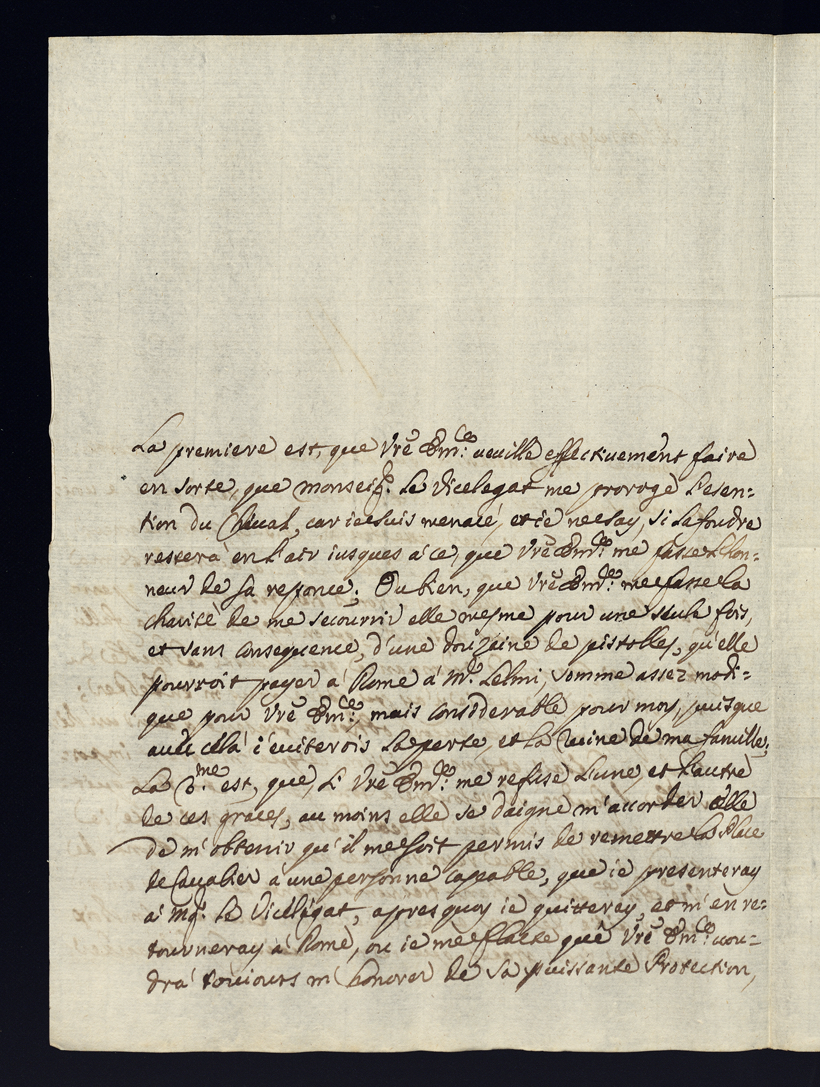 La premiere est, que Vrẽ Em.ce ueuille effectiuement faire
en sorte, que Monseig.r Le Vicelegat me proroge l'esen=
tion du Cheual, car ie suis menacé, et ie ne say, si la foudre
restera en l'air iusques a'ce, que Vrẽ Em.ce me fasse l'hon=
neur de sa responce; Ou bien, que Vrẽ Em.ce me fasse la
charité de me secourrir elle mesme pour une seule fois,
et sans consequence, d'une douzaine de pistolles, qu'elle
pourroit payer a' Rome a' Mr. Lelmi, somme assez modi=
que pour Vrẽ Em.ce, mais considerable pour moy, puisque
auec cela i'euiterois la perte et la ruine de ma famille.
La 2.me est, que si Vrẽ Em.ce me refuse l'une et l'autre
de ces graces, au moins elle se daigne m'accorder celle
de m'obtenir qu'il me soit permis de remettre la Place
de Caualier a' une personne capable, que ie presenteray
a' Mgr. Le Vicelegat, apres quoy ie quitteray, et m'en re=
tourneray a' Rome, ou ie me flatte que Vrẽ Em.ce uou=
dra' touiours m'honorer de Sa puissante Protection,